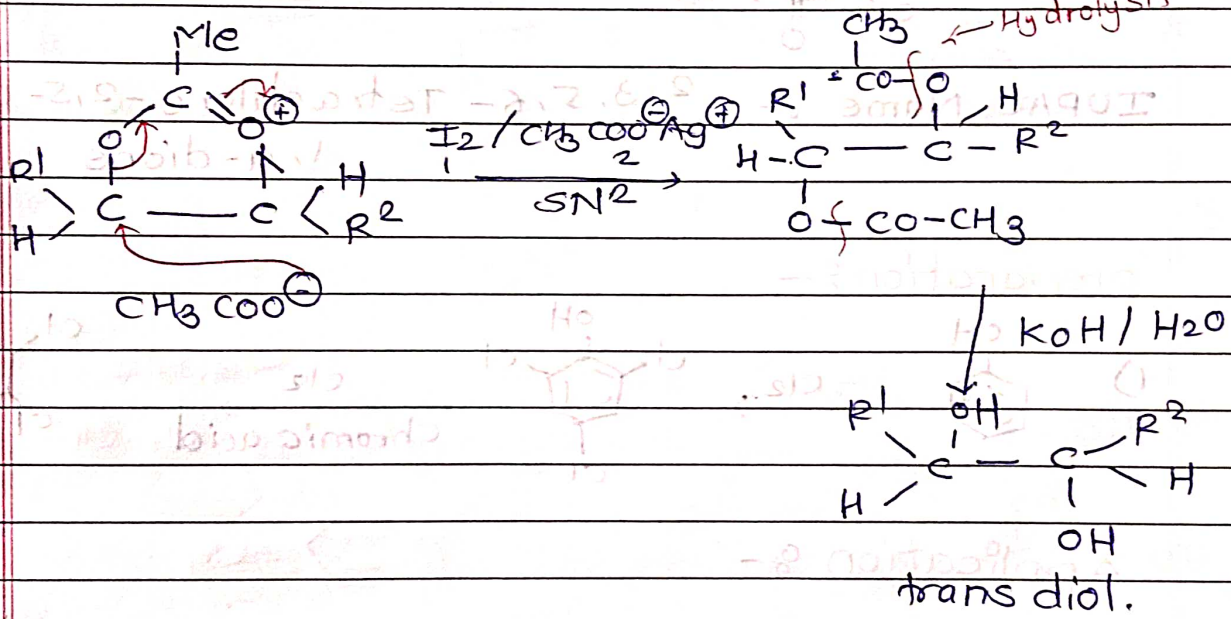 Me
C
O O ⊕
R¹ H
C — C
H R²
CH3 COO ⊖
I2 / CH3 COO⊖Ag⊕
2
SN2
Hydrolysis
CH3
CO-O
R¹ H
H-C — C - R²
O - CO-CH3
KOH / H2O
R¹ OH R²
C — C
H H
OH
trans diol.